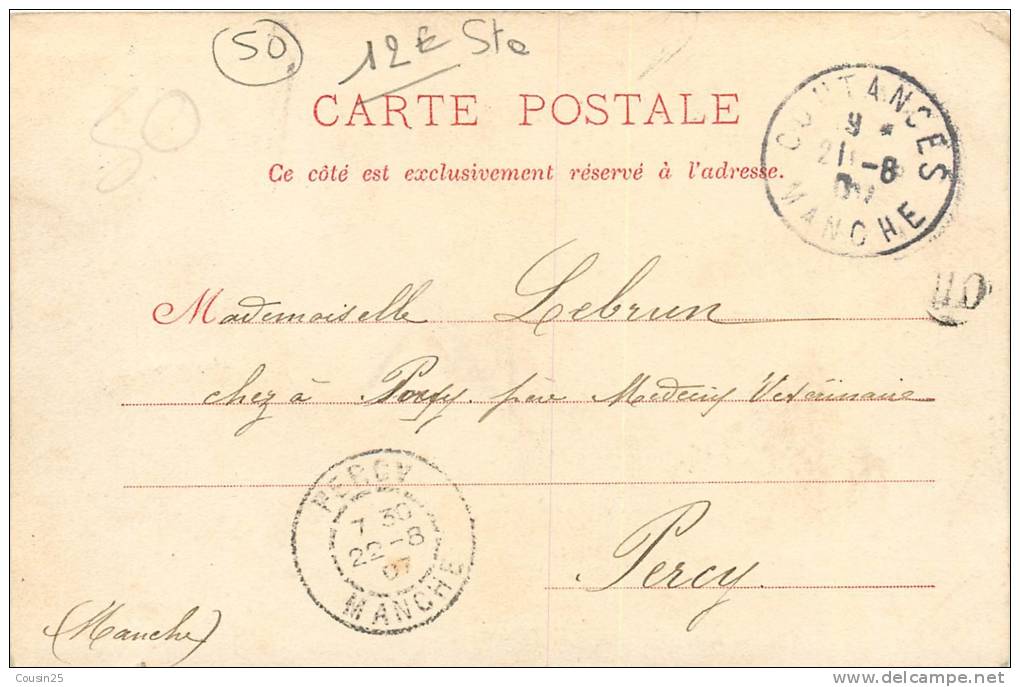 50
12€ Ste
50
CARTE POSTALE
Ce côté est exclusivement réservé à l'adresse.
COUTANCES
9 *
21-8
07
MANCHE
Mademoiselle Lebrun
chez à père Médecin Vétérinaire
PERCY
7 30
22-8
07
MANCHE
Percy.
(Manche)
Cousin25
www.delcampe.net